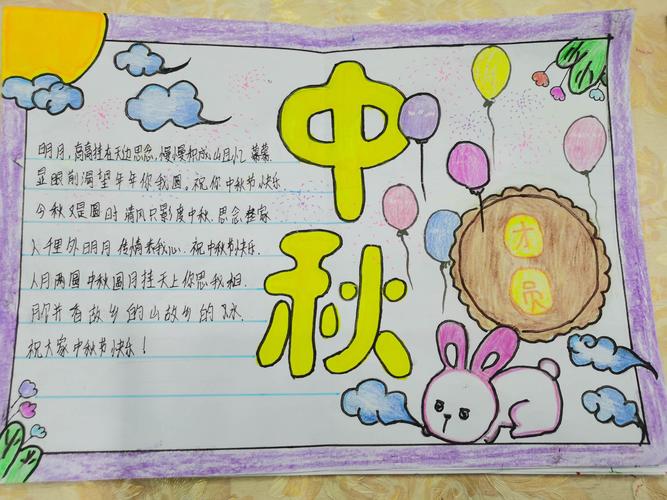 中秋
明月,高高挂在天边思念,慢慢积成山回忆 幕幕
显眼前渴望年年你我圆,祝你 中秋节快乐
今秋又是圆时 清风只影度中秋.思念
人千里外明月 传情表我心. 祝中秋节快乐.
人月两圆 中秋圆月挂天上你思我想.
故乡的山故乡的水.
祝大家中秋节快乐!